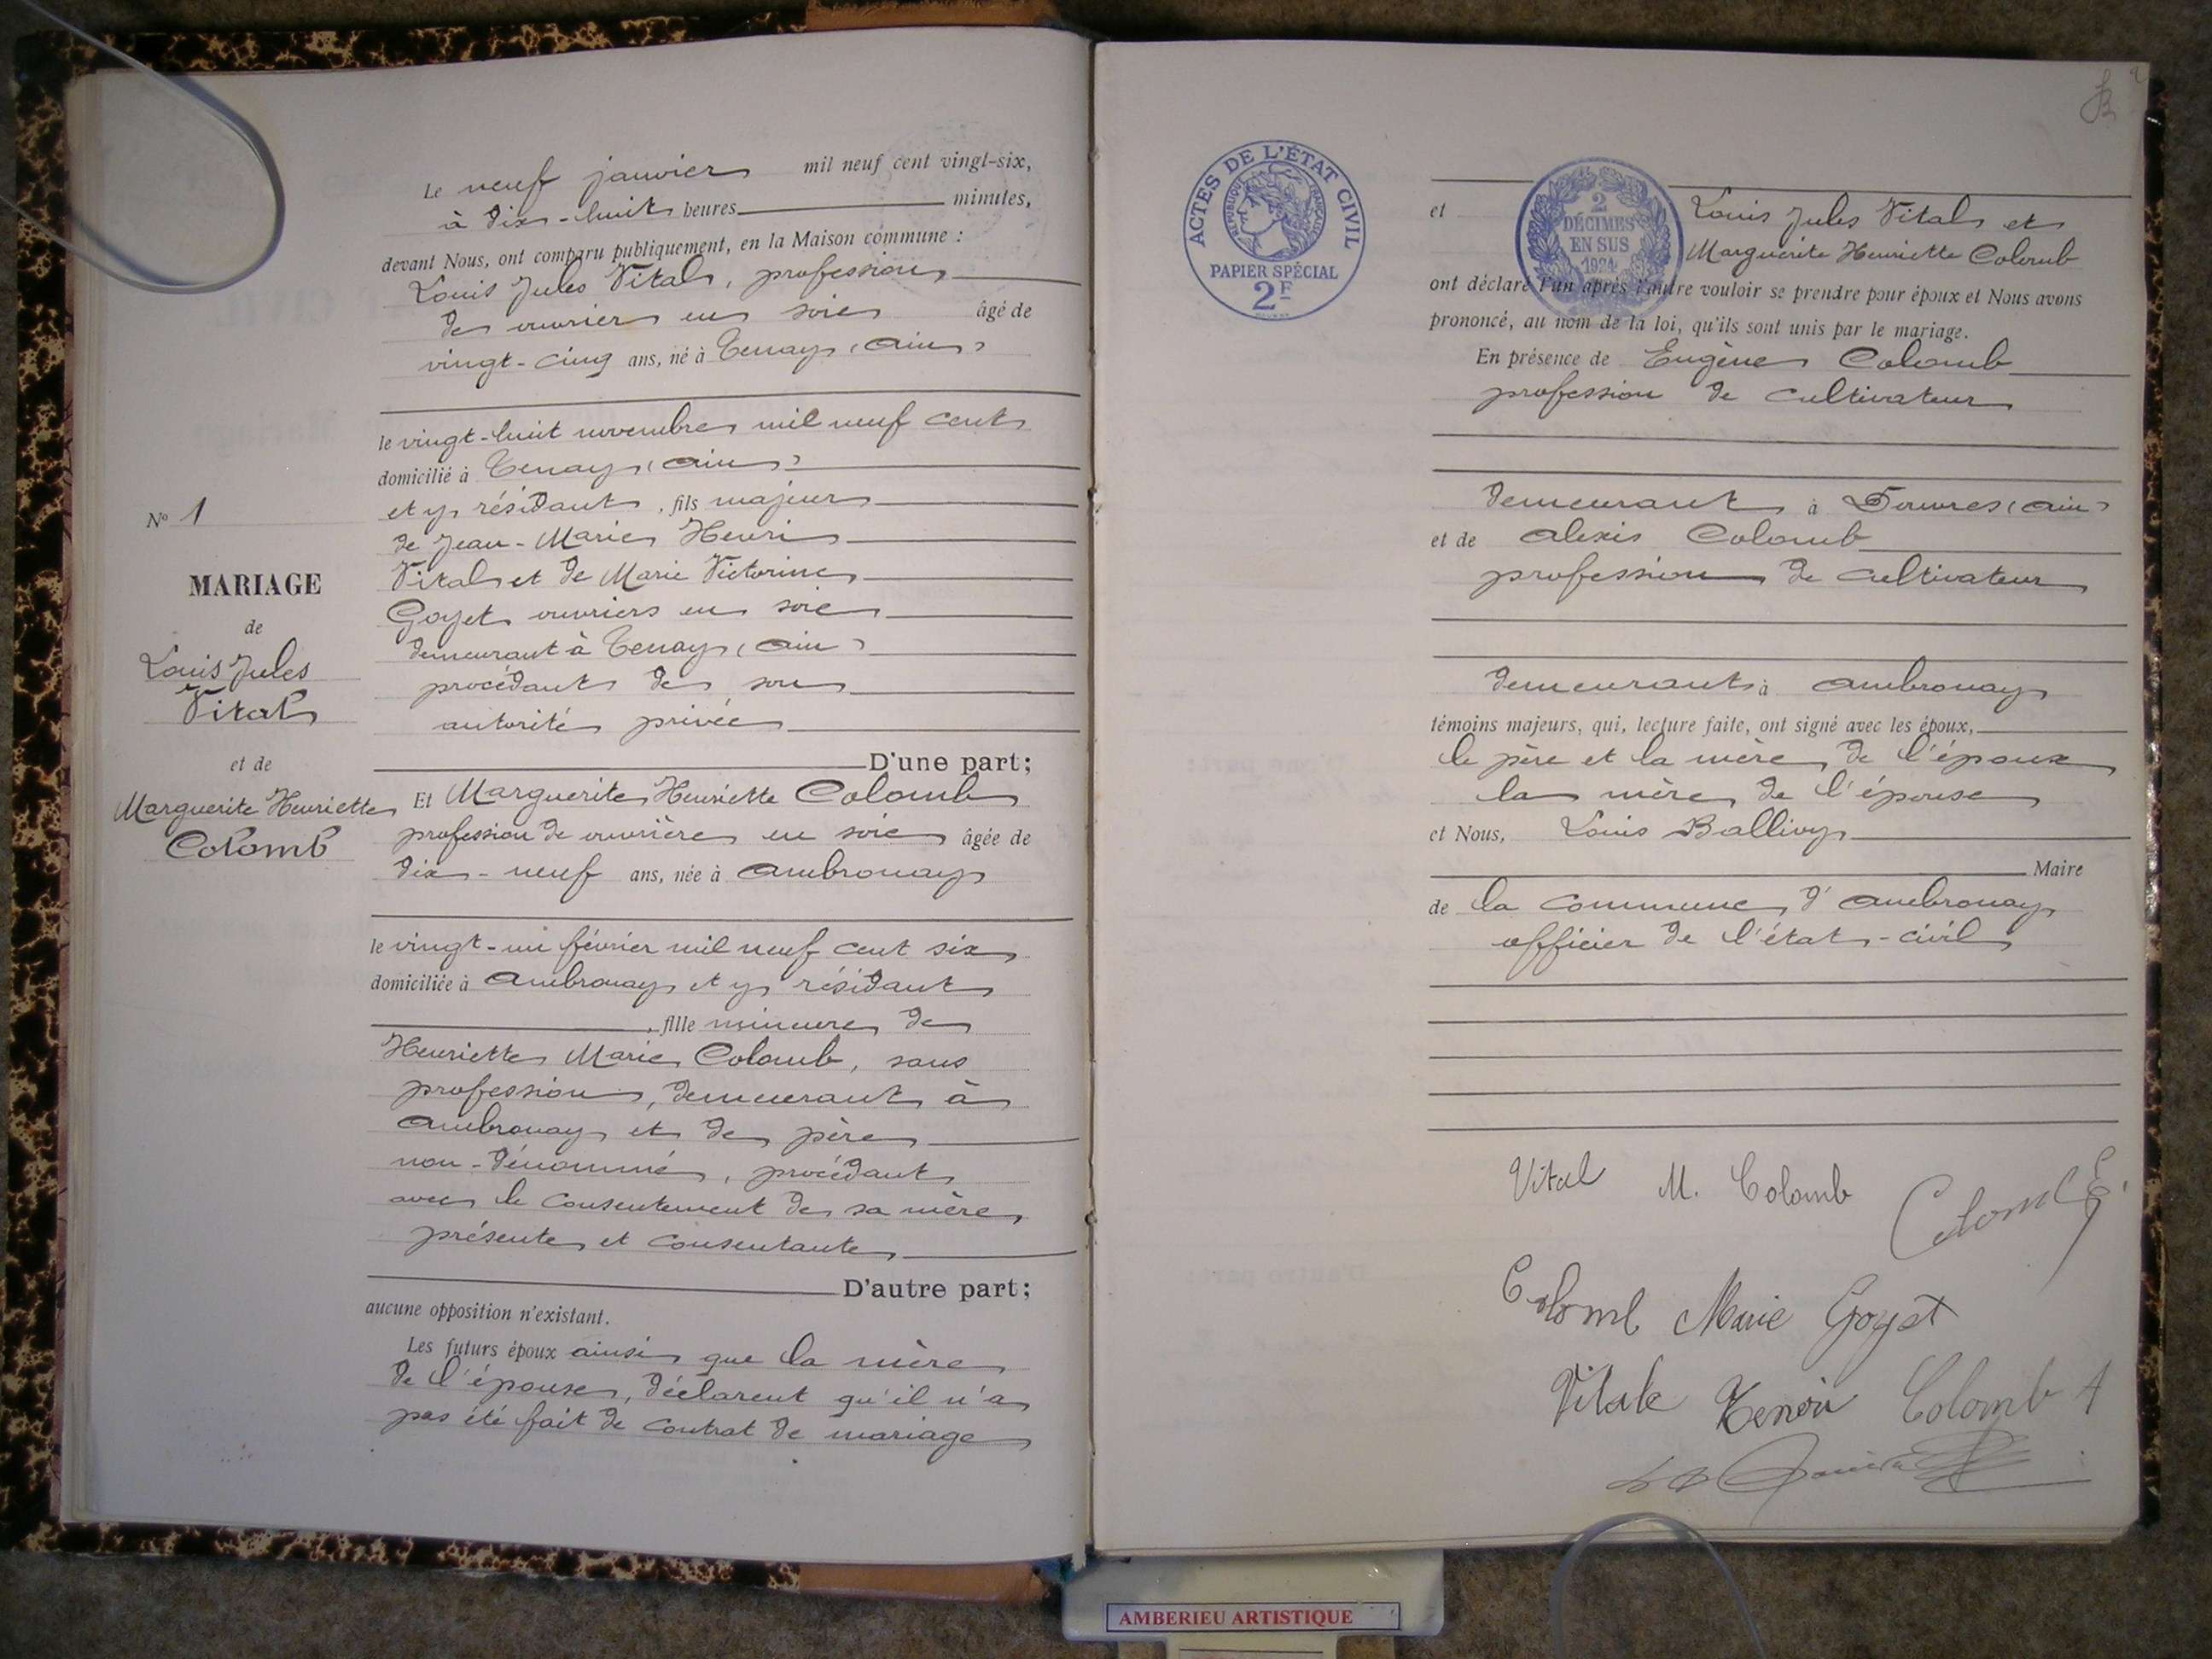 Le neuf janvier mil neuf cent vingt-six,
à dix-huit heures minutes,
devant Nous, ont comparu publiquement, en la Maison commune :
Louis Jules Vital, profession
de ouvrier en soie âgé de
vingt-cinq ans, né à Tenay (Ain)
le vingt-huit novembre mil neuf cent
domicilié à Tenay (Ain)
et y résidant, fils majeur
de Jean-Marie Henri
Vital et de Marie Victorine
Goyet ouvriers en soie
demeurant à Tenay (Ain)
procédant de son
autorité privée
D'une part;
Nº 1
MARIAGE
de
Louis Jules
Vital
et de
Marguerite Henriette
Colomb
Et Marguerite Henriette Colomb
profession de ouvrière en soie âgée de
dix-neuf ans, née à Ambronay
le vingt-un février mil neuf cent six
domiciliée à Ambronay et y résidant
, fille mineure de
Henriette Marie Colomb, sans
profession, demeurant à
Ambronay et de père
non-dénommé, procédant
avec le consentement de sa mère
présente et consentante
D'autre part;
aucune opposition n'existant.
Les futurs époux ainsi que la mère
de l'épouse, déclarent qu'il n'a
pas été fait de contrat de mariage
ACTES DE L'ÉTAT CIVIL
RÉPUBLIQUE FRANÇAISE
PAPIER SPÉCIAL
2F
2
DÉCIMES
EN SUS
1924
et Louis Jules Vital et
Marguerite Henriette Colomb
ont déclaré l'un après l'autre vouloir se prendre pour époux et Nous avons
prononcé, au nom de la loi, qu'ils sont unis par le mariage.
En présence de Eugène Colomb
profession de cultivateur
demeurant à Douvres (Ain)
et de Alexis Colomb
profession de cultivateur
demeurant à Ambronay
témoins majeurs, qui, lecture faite, ont signé avec les époux,
le père et la mère de l'époux
la mère de l'épouse
et Nous, Louis Ballivy
Maire
de la commune d'Ambronay
officier de l'état-civil
Vital M. Colomb Colomb E.
Colomb Marie Goyet
Vitale Colomb A
AMBERIEU ARTISTIQUE